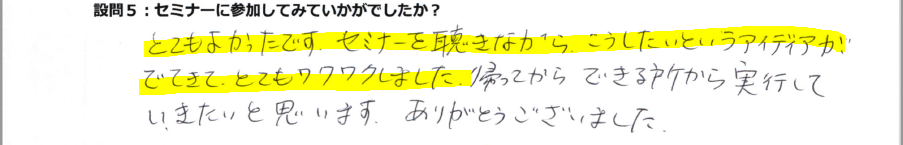 設問５：セミナーに参加してみていかがでしたか？
とてもよかったです。セミナーを聴きながら、こうしたいというアイディアが
でてきて、とてもワクワクしました。帰ってから できる所から実行して
いきたいと思います。ありがとうございました。